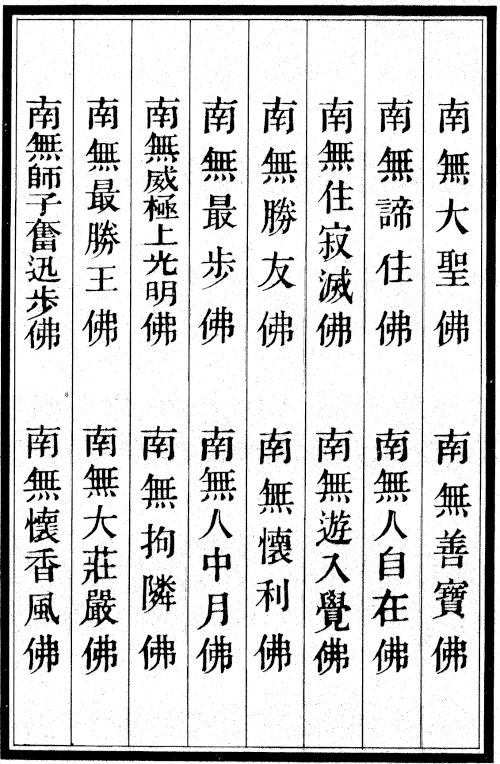 南無大聖佛　南無善寶佛
南無諦住佛　南無人自在佛
南無住寂滅佛　南無遊入覺佛
南無勝友佛　南無懷利佛
南無最步佛　南無人中月佛
南無威極上光明佛　南無拘隣佛
南無最勝王佛　南無大莊嚴佛
南無師子奮迅步佛　南無懷香風佛